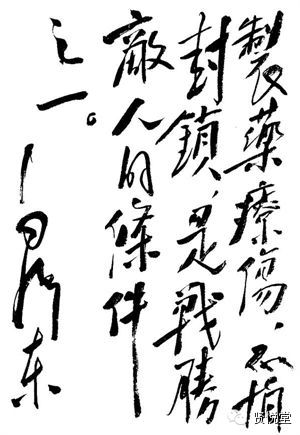 製藥療傷,不怕
封鎖,是戰勝
敵人的條件
之一。
毛澤东